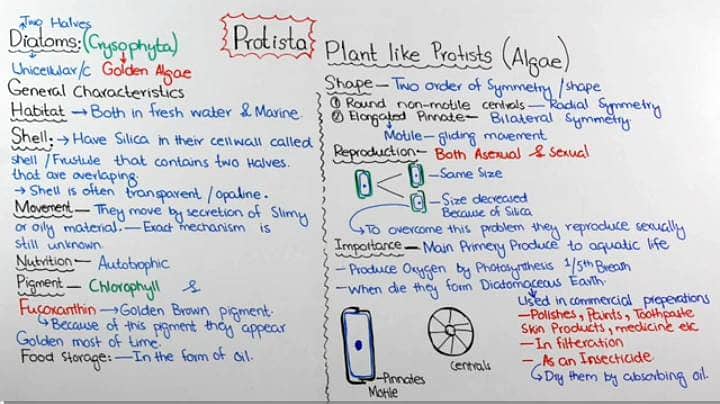 Two Halves
Diatoms: (Crysophyta)
Unicellular/c Golden Algae
General Characteristics
Habitat → Both in fresh water & Marine.
Shell: → Have Silica in their cellwall called
shell / Frustule that contains two Halves.
that are overlaping.
→ Shell is often transparent / opaline.
Movement — They move by secretion of Slimy
or oily material. — Exact mechanism is
still unknown.
Nutrition — Autotrophic
Pigment — Chlorophyll &
Fucoxanthin → Golden Brown pigment.
Because of this pigment they appear
Golden most of time.
Food Storage: — In the form of oil.
Protista
Plant like Protists (Algae)
Shape — Two order of Symmetry / shape
① Round non-motile centrals — Radial Symmetry
② Elongated Pinnate — Bilateral Symmetry
Motile — gliding movement
Reproduction — Both Asexual & Sexual
— Same Size
— Size decreased
Because of Silica
To overcome this problem they reproduce sexually
Importance — Main Primery Produce to aquatic life
— Produce Oxygen by Photosynthesis 1/5th Breath
— When die they form Diatomaceous Earth.
Used in commercial preperations
— Polishes, Paints, Toothpaste
Skin Products, medicine etc
— In filteration
— As an Insecticide
Dry them by absorbing oil.
— Pinnates
Motile
Centrals